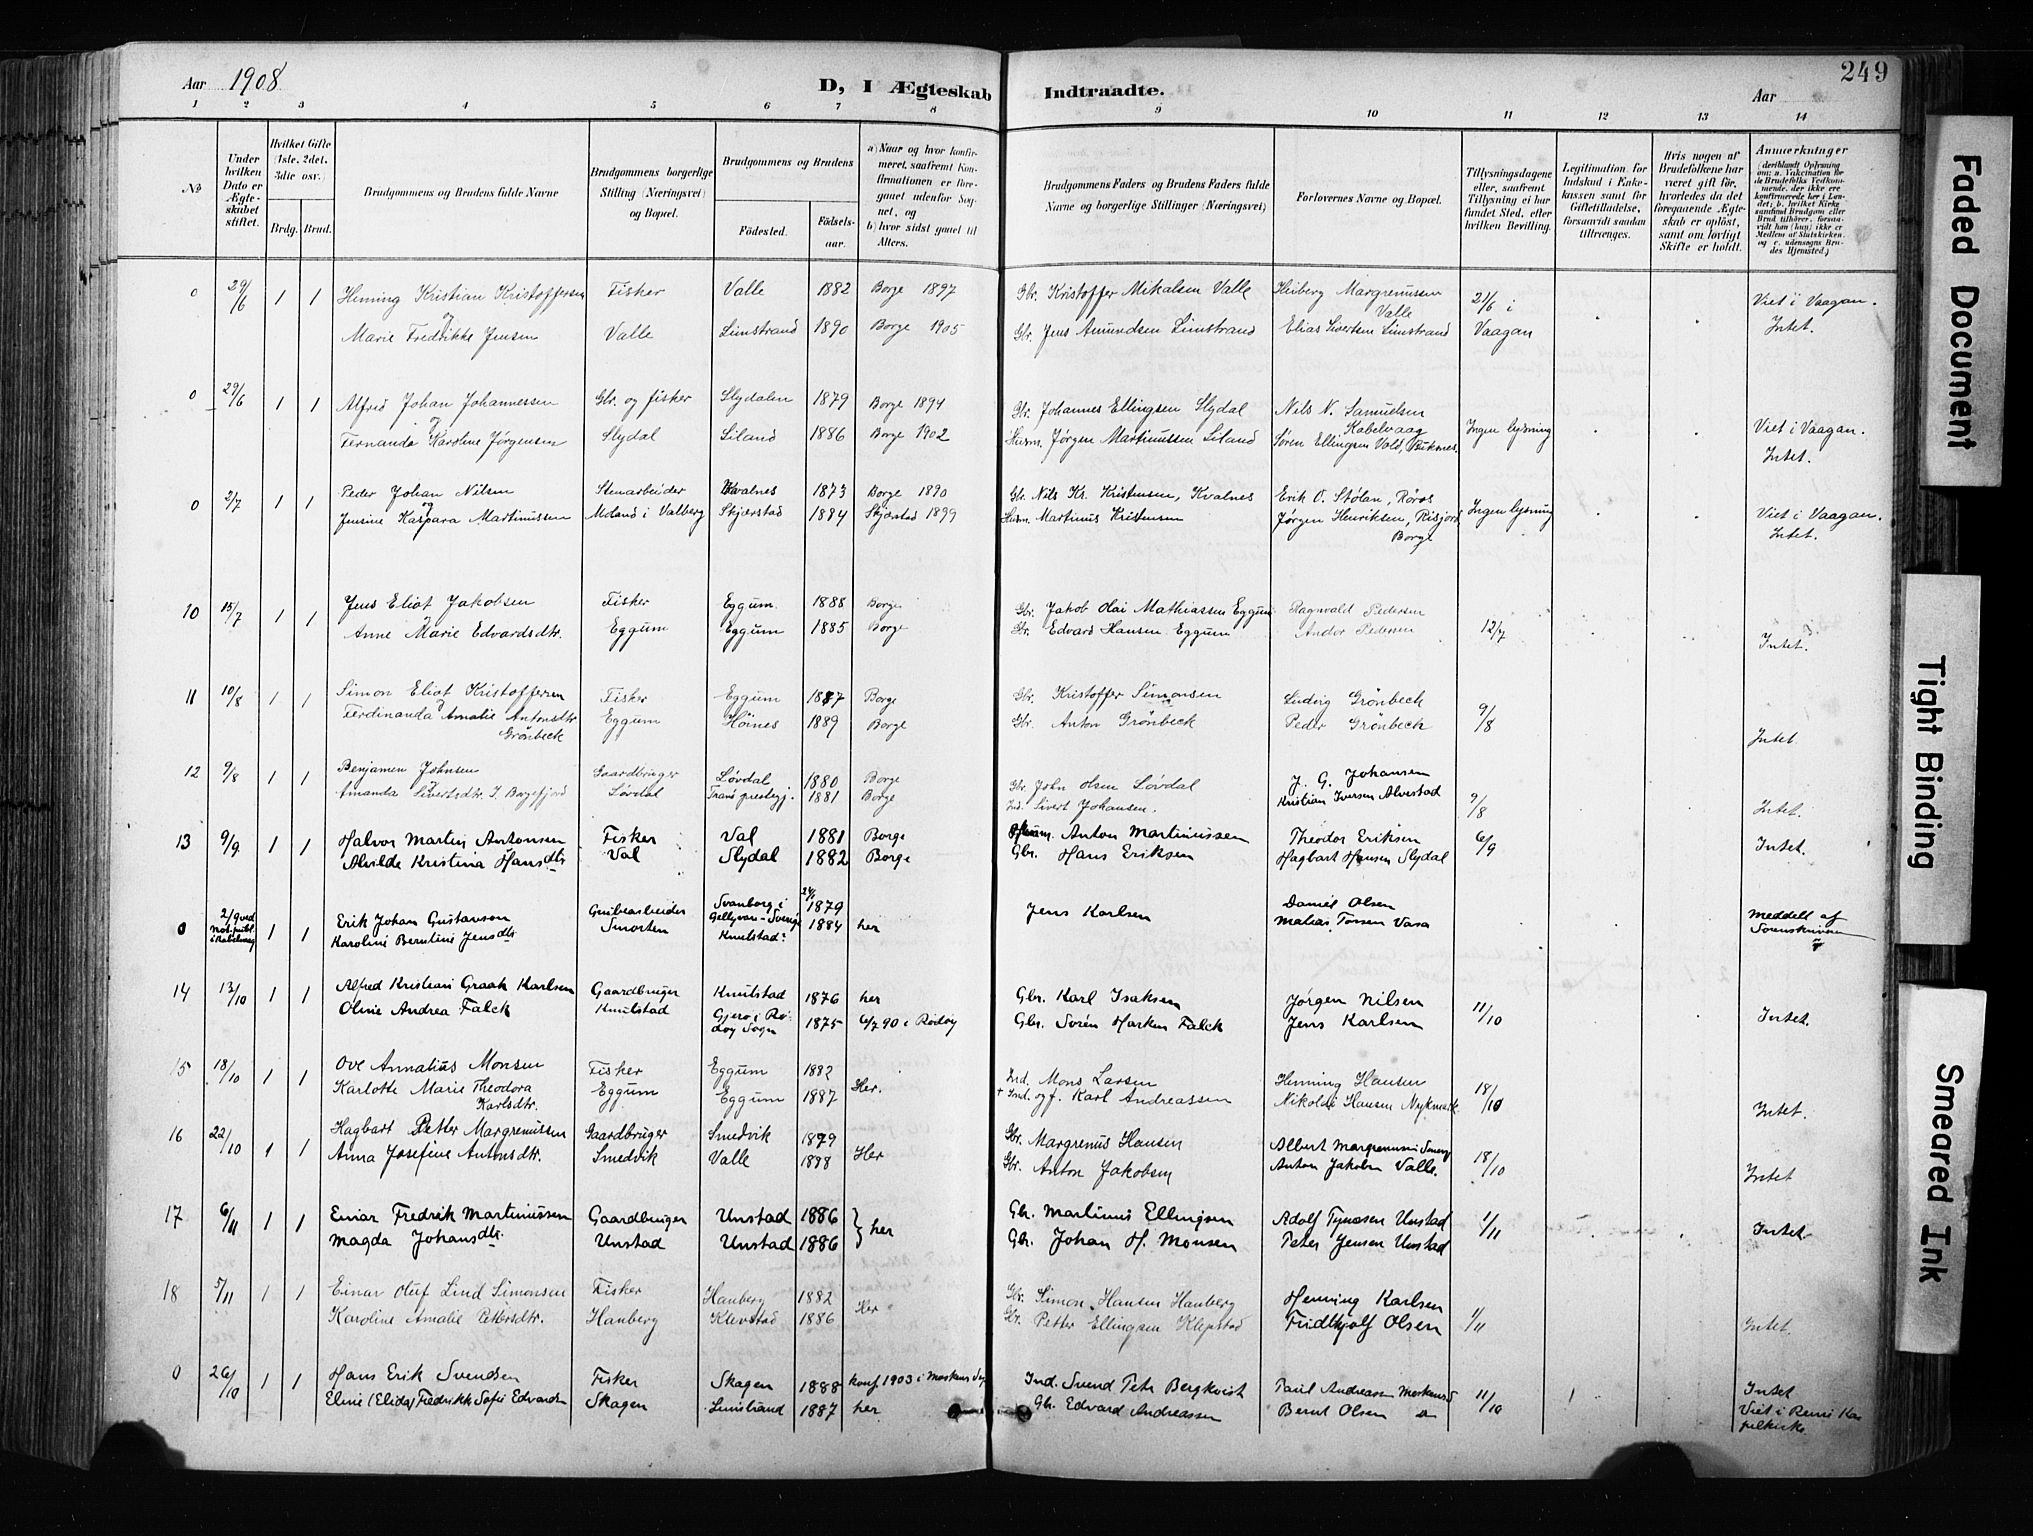 Aar 1908 D, I Ægteskab Indtraadte. Aar 249
1 2 3 4 5 6 7 8 9 10 11 12 13 14
No
Under hvilken Dato er Ægteskabet stiftet.
Hvilket Gifte (1ste, 2det, 3die osv.)
Brdg. Brud.
Brudgommens og Brudens fulde Navne
Brudgommens borgerlige Stilling (Næringsvei) og Bopæl.
Brudgommens og Brudens
Fødested. Fødselsaar.
a) Naar og hvor konfirmeret, saafremt Konfirmationen er foregaaet udenfor Sognet, og b) hvor sidst gaaet til Alters.
Brudgommens Faders og Brudens Faders fulde Navne og borgerlige Stillinger (Næringsvei)
Forlovernes Navne og Bopæl.
Tillysningsdagene eller, saafremt Tillysning ei har fundet Sted, efter hvilken Bevilling.
Legitimation for Indskud i Enkekassen samt for Giftetilladelse, forsaavidt saadan tiltrænges.
Hvis nogen af Brudefolkene har været gift før, hvorledes da det foregaaende Ægteskab er opløst, samt om lovligt Skifte er holdt.
Anmærkninger (deriblandt Oplysning om: a. Vakcination for de Brudefolks Vedkommende, der ikke ere konfirmerede her i Landet; b. hvilket Kirkesamfund Brudgom eller Brud tilhører, forsaavidt han (hun) ikke er Medlem af Statskirken, og c. udensogns Brudes Hjemsted.)
0 29/6 1 1 Heming Kristian Kristoffersen Fisker Valle 1882 Borge 1897 Gbr. Kristoffer Mikalsen Valle Heiberg Margrenussen Valle 21/6 i Viet i Vaagan.
og Marie Fredrikke Jensen Valle Limstrand 1890 Borge 1905 Gbr. Jens Amundsen Limstrand Elias Sivertsen Limstrand Vaagan Intet.
0 29/6 1 1 Alfred Johan Johannessen Gbr. og fisker Slydalen 1879 Borge 1894 Gbr. Johannes Ellingsen Slydal Nils N. Samuelsen Kabelvaag Ingen lysning Viet i Vaagan.
og Fernanda Karoline Jørgensen Slydal Liland 1886 Borge 1902 Husm. Jørgen Martinussen Liland Søren Ellingsen Vold, Buknes. Intet.
0 2/7 1 1 Peder Johan Nilsen Stenarbeider Kvalnes 1873 Borge 1890 Gbr. Nils Kr. Kristensen, Kvalnes Erik O. Stølan, Røros Ingen lysning Viet i Vaagan.
og Jensine Kaspara Martinussen Moland i Valberg Skjærstad 1884 Skjærstad 1899 Husm. Martinus Kristensen Jørgen Henriksen, Risjord Borge Intet.
10 15/7 1 1 Jens Eliot Jakobsen Fisker Eggum 1888 Borge Gbr. Jakob Olai Mathiassen Eggum Ragnvald Pedersen 12/7
Anne Marie Edvardsdtr. Eggum Eggum 1885 Borge Gbr. Edvard Hansen Eggum Andor Pedersen Intet.
11 10/8 1 1 Simon Eliot Kristoffersen Fisker Eggum 1887 Borge Gbr. Kristoffer Simonsen Ludvig Grönbeck 9/8
Ferdinanda Amalie Antonsdtr Grönbeck Eggum Höines 1889 Borge Gbr. Anton Grönbeck Peder Grönbeck Intet
12 9/8 1 1 Benjamen Johnsen Gaardbruger Løvdal 1880 Borge Gbr. John Olsen Løvdal J. G. Johansen 9/8
Amanda Sivertsdtr. I. Borgefjord Løvdal 1881 Borge Ind. Sivert Johansen. Kristian Iversen Alvestad Intet.
13 9/9 1 1 Halvor Martin Antonsen Fisker Val 1881 Borge Anton Martinussen Theodor Eriksen 6/9 Intet.
Alvilde Kristina Hansdtr Val Slydal 1882 Borge Gbr. Hans Eriksen Hagbart Hansen Slydal
0 2/9 ved not. publ. i Kabelvaag 1 1 Erik Johan Gustavson Grubearbeider Svanborg i Gellyvare - Sverige 24/1 1879 Jens Karlsen Daniel Olsen Meddelt af
Karoline Berntine Jensdtr Smorten Knutstad 1884 her Matias Tonsen Vasa Sorenskriveren
14 13/10 1 1 Alfred Kristian Graak Karlsen Gaardbruger Knutstad 1876 her Gbr. Karl Isaksen Jørgen Nilsen 11/10
Oline Andrea Falck Knutstad Gjerø i Rødøy Sogn 1875 6/7 90 i Rødøy Gbr. Soren Falck Jens Karlsen Intet.
15 18/10 1 1 Ove Annalius Monsen Fisker Eggum 1882 Her. Ind. Mons Larsen Henning Hansen 18/10
Karlotte Marie Theodora Karlsdtr. Eggum Eggum 1887 + Ind. og f. Karl Andreassen Nikolai Hansen Nykmark Intet.
16 22/10 1 1 Hagbart Petter Margrenussen Gaardbruger Smedvik 1879 Her Gbr. Margrenus Hansen Albert Margrenusen 18/10
Anna Josefine Antonsdtr. Smedvik Valle 1888 Gbr. Anton Jakobsen Anton Jakobsen Valle. Intet
17 6/11 1 1 Einar Fredrik Martinussen Gaardbruger Unstad 1886 } her Gbr. Martinus Ellingsen Adolf Unstad 1/11 Intet
Magda Johansdtr. Unstad Unstad 1886 Gbr. Johan H. Monsen Peter Jensen Unstad
18 5/11 1 1 Einar Oluf Lind Simonsen Fisker Hauberg 1882 Her Gbr. Simon Hansen Hauberg Henning Karlsen 1/11
Karoline Amalie Pettersdtr. Hauberg Klevstad 1886 Gbr. Petter Ellingsen Klepstad Fridthjolf Olsen Intet.
0 26/10 1 1 Hans Erik Svendsen Fisker Skagen 1888 konf. 1903 i Moskenes Ind. Svend Petr Bergkvist Paul Andreassen 11/10 1 Intet
Eline (Elida) Fredrikk Sofie Edvardsen Skagen Limstrand 1887 her Gbr. Edvard Andreassen Bernt Olsen Viet i Reine Kapelkirke
Faded Document
Tight Binding
Smeared Ink